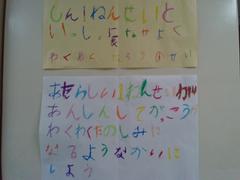 しん1ねんせいと
いっしょになかよく
わくわく
あたらしい1ねんせいが
あんしんしてがっこうが
わくわくたのしみに
なるようなかいに
しよう